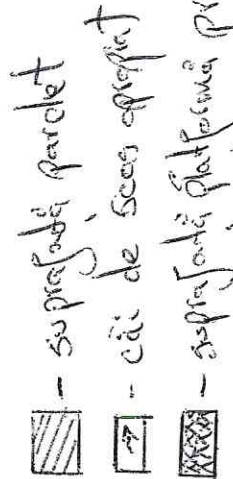 - suprafață parchet
- căi de acces apropiat
- suprafață platformă pr